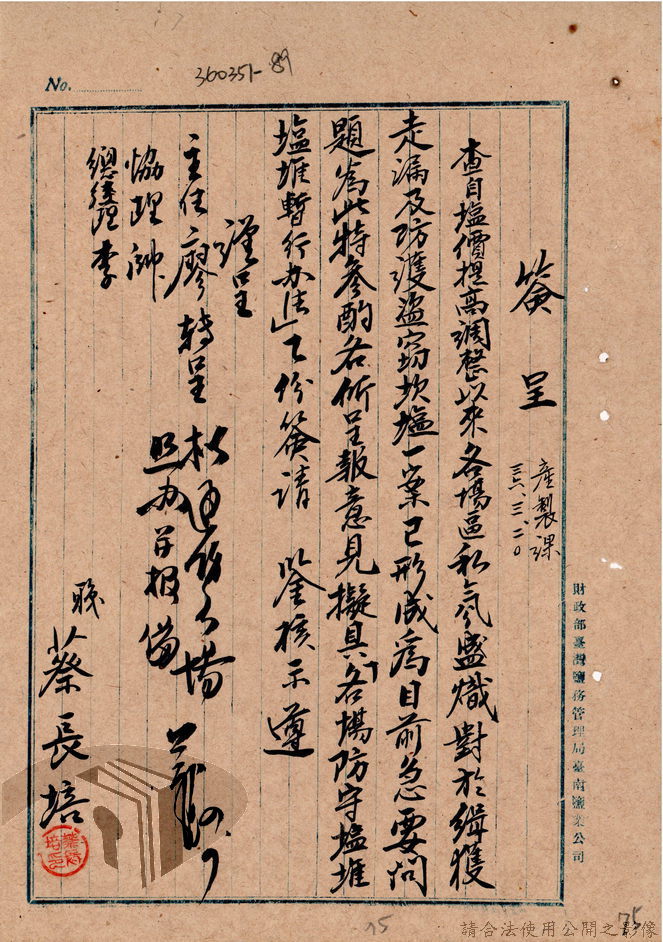 No.
360351-89
簽呈
產製課
三六、三、二〇
查自塩價提高調整以來各場區私氛盛熾對於緝獲
走漏及防護盜竊坎塩一案已形成為目前急要問
題為此特參酌各所呈報意見擬具「各場防守塩堆
塩堆暫行办法」乙份簽請 鋻核示遵
謹呈
主任廖轉呈
協理
總經理李
照办并报備
職蔡長培
財政部臺灣鹽務管理局臺南鹽業公司
75
75
請合法使用公開之影像